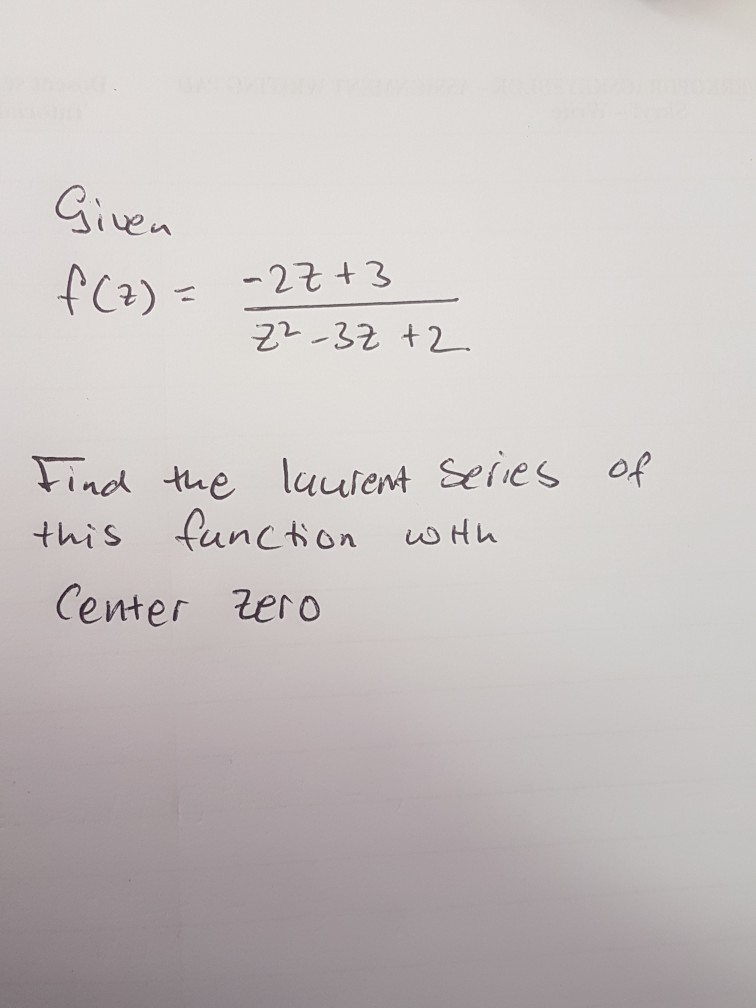 Given
f(z) = -2z+3
z² -3z +2
Find the laurent series of
this function with
Center zero